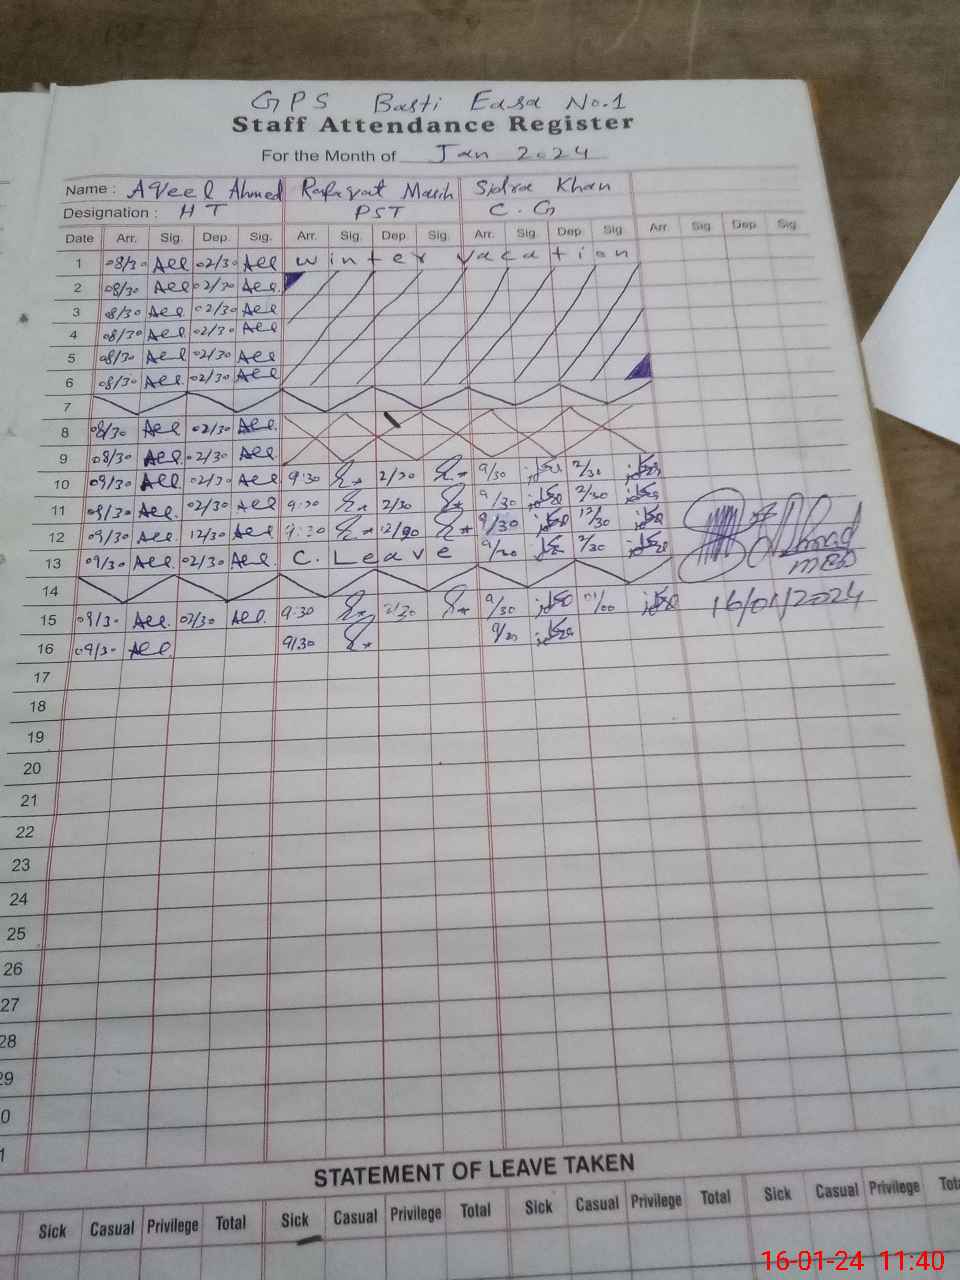 GPS Basti Easa No.1
Staff Attendance Register
For the Month of Jan 2024
Name : Aqeel Ahmed Rafaqat Masih Sidra Khan
Designation : HT PST C.G
Date Arr. Sig. Dep. Sig. Arr. Sig. Dep. Sig. Arr. Sig. Dep. Sig. Arr. Sig. Dep. Sig.
1 08/30 Aee 02/30 Aee Winter Vacation
2 08/30 Aee 02/30 Aee
3 08/30 Aee 02/30 Aee
4 08/30 Aee 02/30 Aee
5 08/30 Aee 02/30 Aee
6 08/30 Aee 02/30 Aee
7
8 08/30 Aee 02/30 Aee
9 08/30 Aee 02/30 Aee
10 09/30 Aee 02/30 Aee 9:30 2/30 9/30 2/30
11 09/30 Aee 02/30 Aee 9:30 2/30 9/30 2/30
12 09/30 Aee 12/30 Aee 9:30 12/30 9/30 12/30
13 09/30 Aee 02/30 Aee C. Leave 9/30 2/30
14
15 09/30 Aee 02/30 Aee 9:30 2/30 9/30 01/00
16/01/2024
16 09/30 Aee 9/30 9/30
17
18
19
20
21
22
23
24
25
26
27
28
29
0
1
STATEMENT OF LEAVE TAKEN
Sick Casual Privilege Total Sick Casual Privilege Total Sick Casual Privilege Total Sick Casual Privilege Tot
16-01-24 11:40